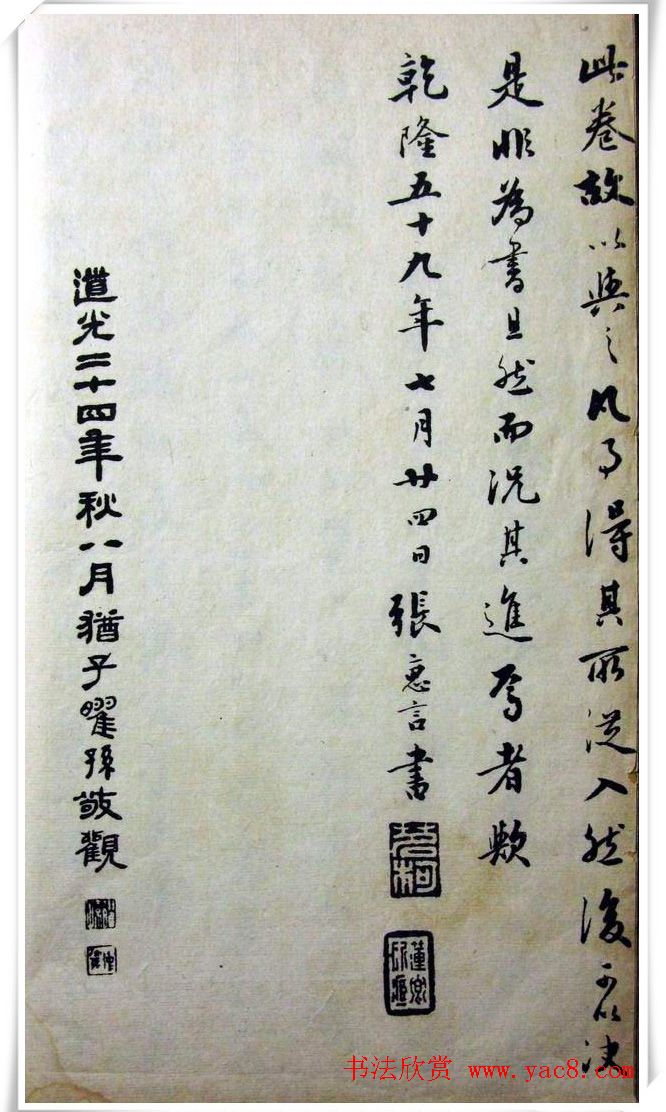 此卷故以與之凡事得其所從入然後可以決
是非為書且然而況其進焉者歟
乾隆五十九年七月廿四日張惠言書
道光二十四年秋八月猶子曜孫敬觀
书法欣赏 www.yac8.com